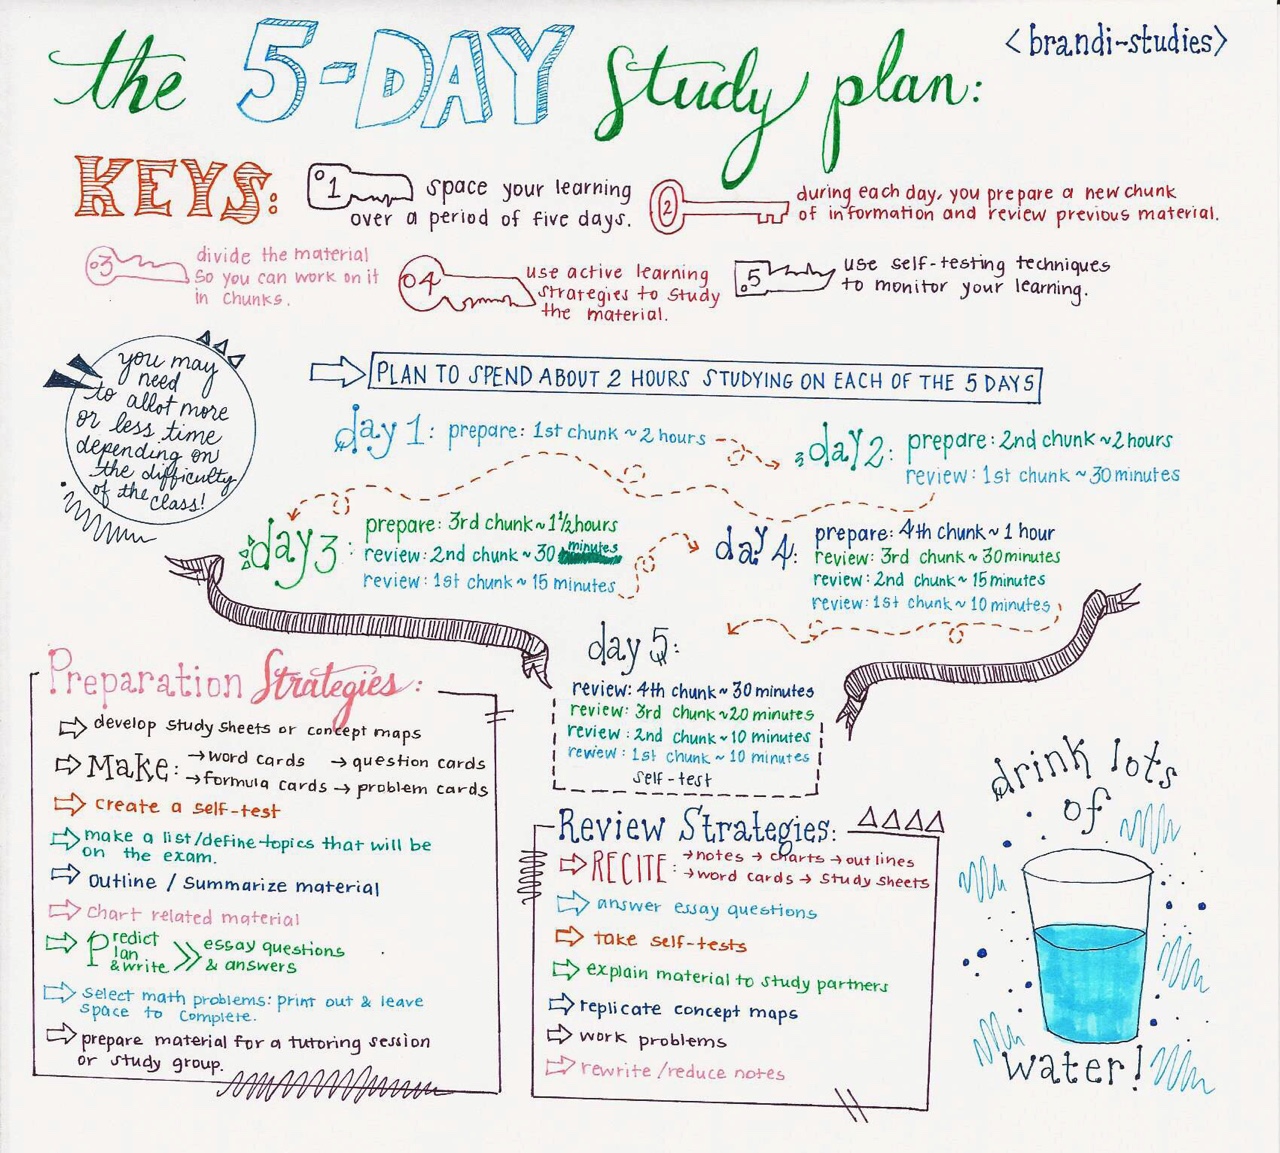 the 5-DAY study plan:
<brandi-studies>
KEYS:
1 space your learning
over a period of five days.
2 during each day, you prepare a new chunk
of information and review previous material.
3 divide the material
so you can work on it
in chunks.
4 use active learning
strategies to study
the material.
5 use self-testing techniques
to monitor your learning.
you may
need
to allot more
or less time
depending on
the difficulty
of the class!
PLAN TO SPEND ABOUT 2 HOURS STUDYING ON EACH OF THE 5 DAYS
day 1: prepare: 1st chunk ~ 2 hours
day 2: prepare: 2nd chunk ~2 hours
review: 1st chunk ~ 30 minutes
day 3: prepare: 3rd chunk ~ 1½ hours
review: 2nd chunk ~ 30 minutes
review: 1st chunk ~ 15 minutes
day 4: prepare: 4th chunk ~ 1 hour
review: 3rd chunk ~ 30 minutes
review: 2nd chunk ~ 15 minutes
review: 1st chunk ~ 10 minutes
day 5:
review: 4th chunk ~ 30 minutes
review: 3rd chunk ~20 minutes
review: 2nd chunk ~ 10 minutes
review: 1st chunk ~ 10 minutes
self-test
Preparation Strategies:
develop study sheets or concept maps
Make: → word cards → question cards
→ formula cards → problem cards
create a self-test
make a list/define topics that will be
on the exam.
outline / summarize material
chart related material
Predict
Plan
& write
essay questions
& answers
Select math problems: print out & leave
space to complete.
prepare material for a tutoring session
or study group.
Review Strategies:
RECITE: → notes → charts → outlines
→ word cards → study sheets
answer essay questions
take self-tests
explain material to study partners
replicate concept maps
work problems
rewrite/reduce notes
drink lots
of
water!